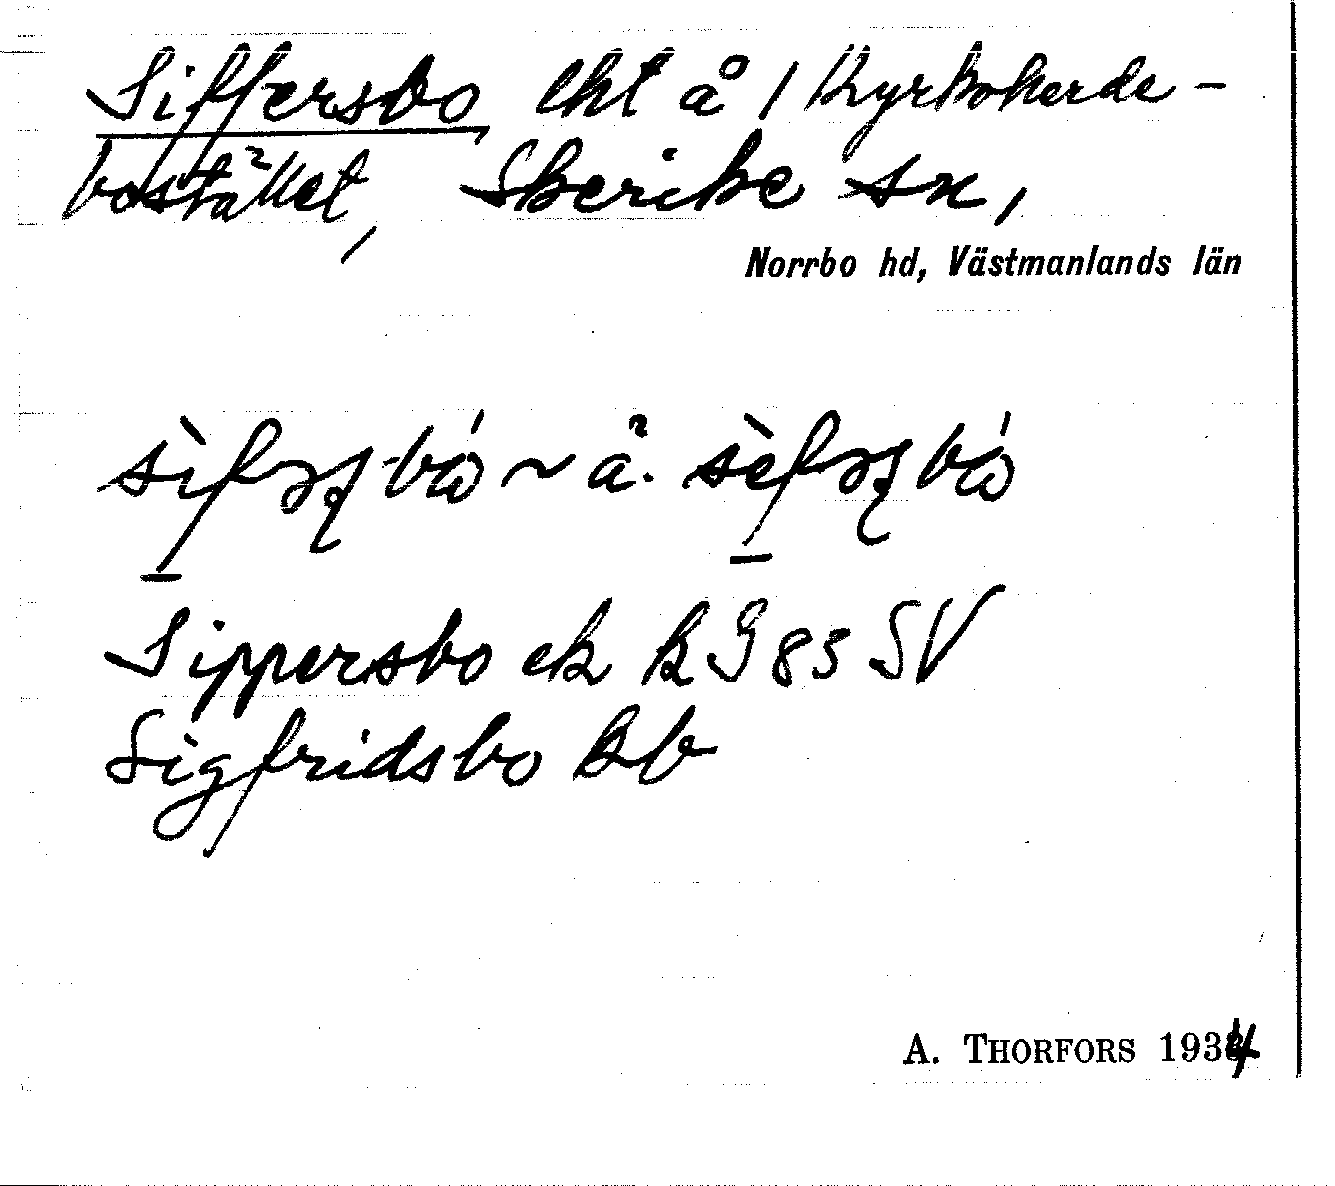 Siffersbo lht å / Kyrkoherde-
bostället, Skerike sn,
Norrbo hd, Västmanlands län
sìfəʂbó ~ å. sèfəʂbó
Sippersbo ek R G 83 SV
Sigfridsbo kb
A. THORFORS 1934